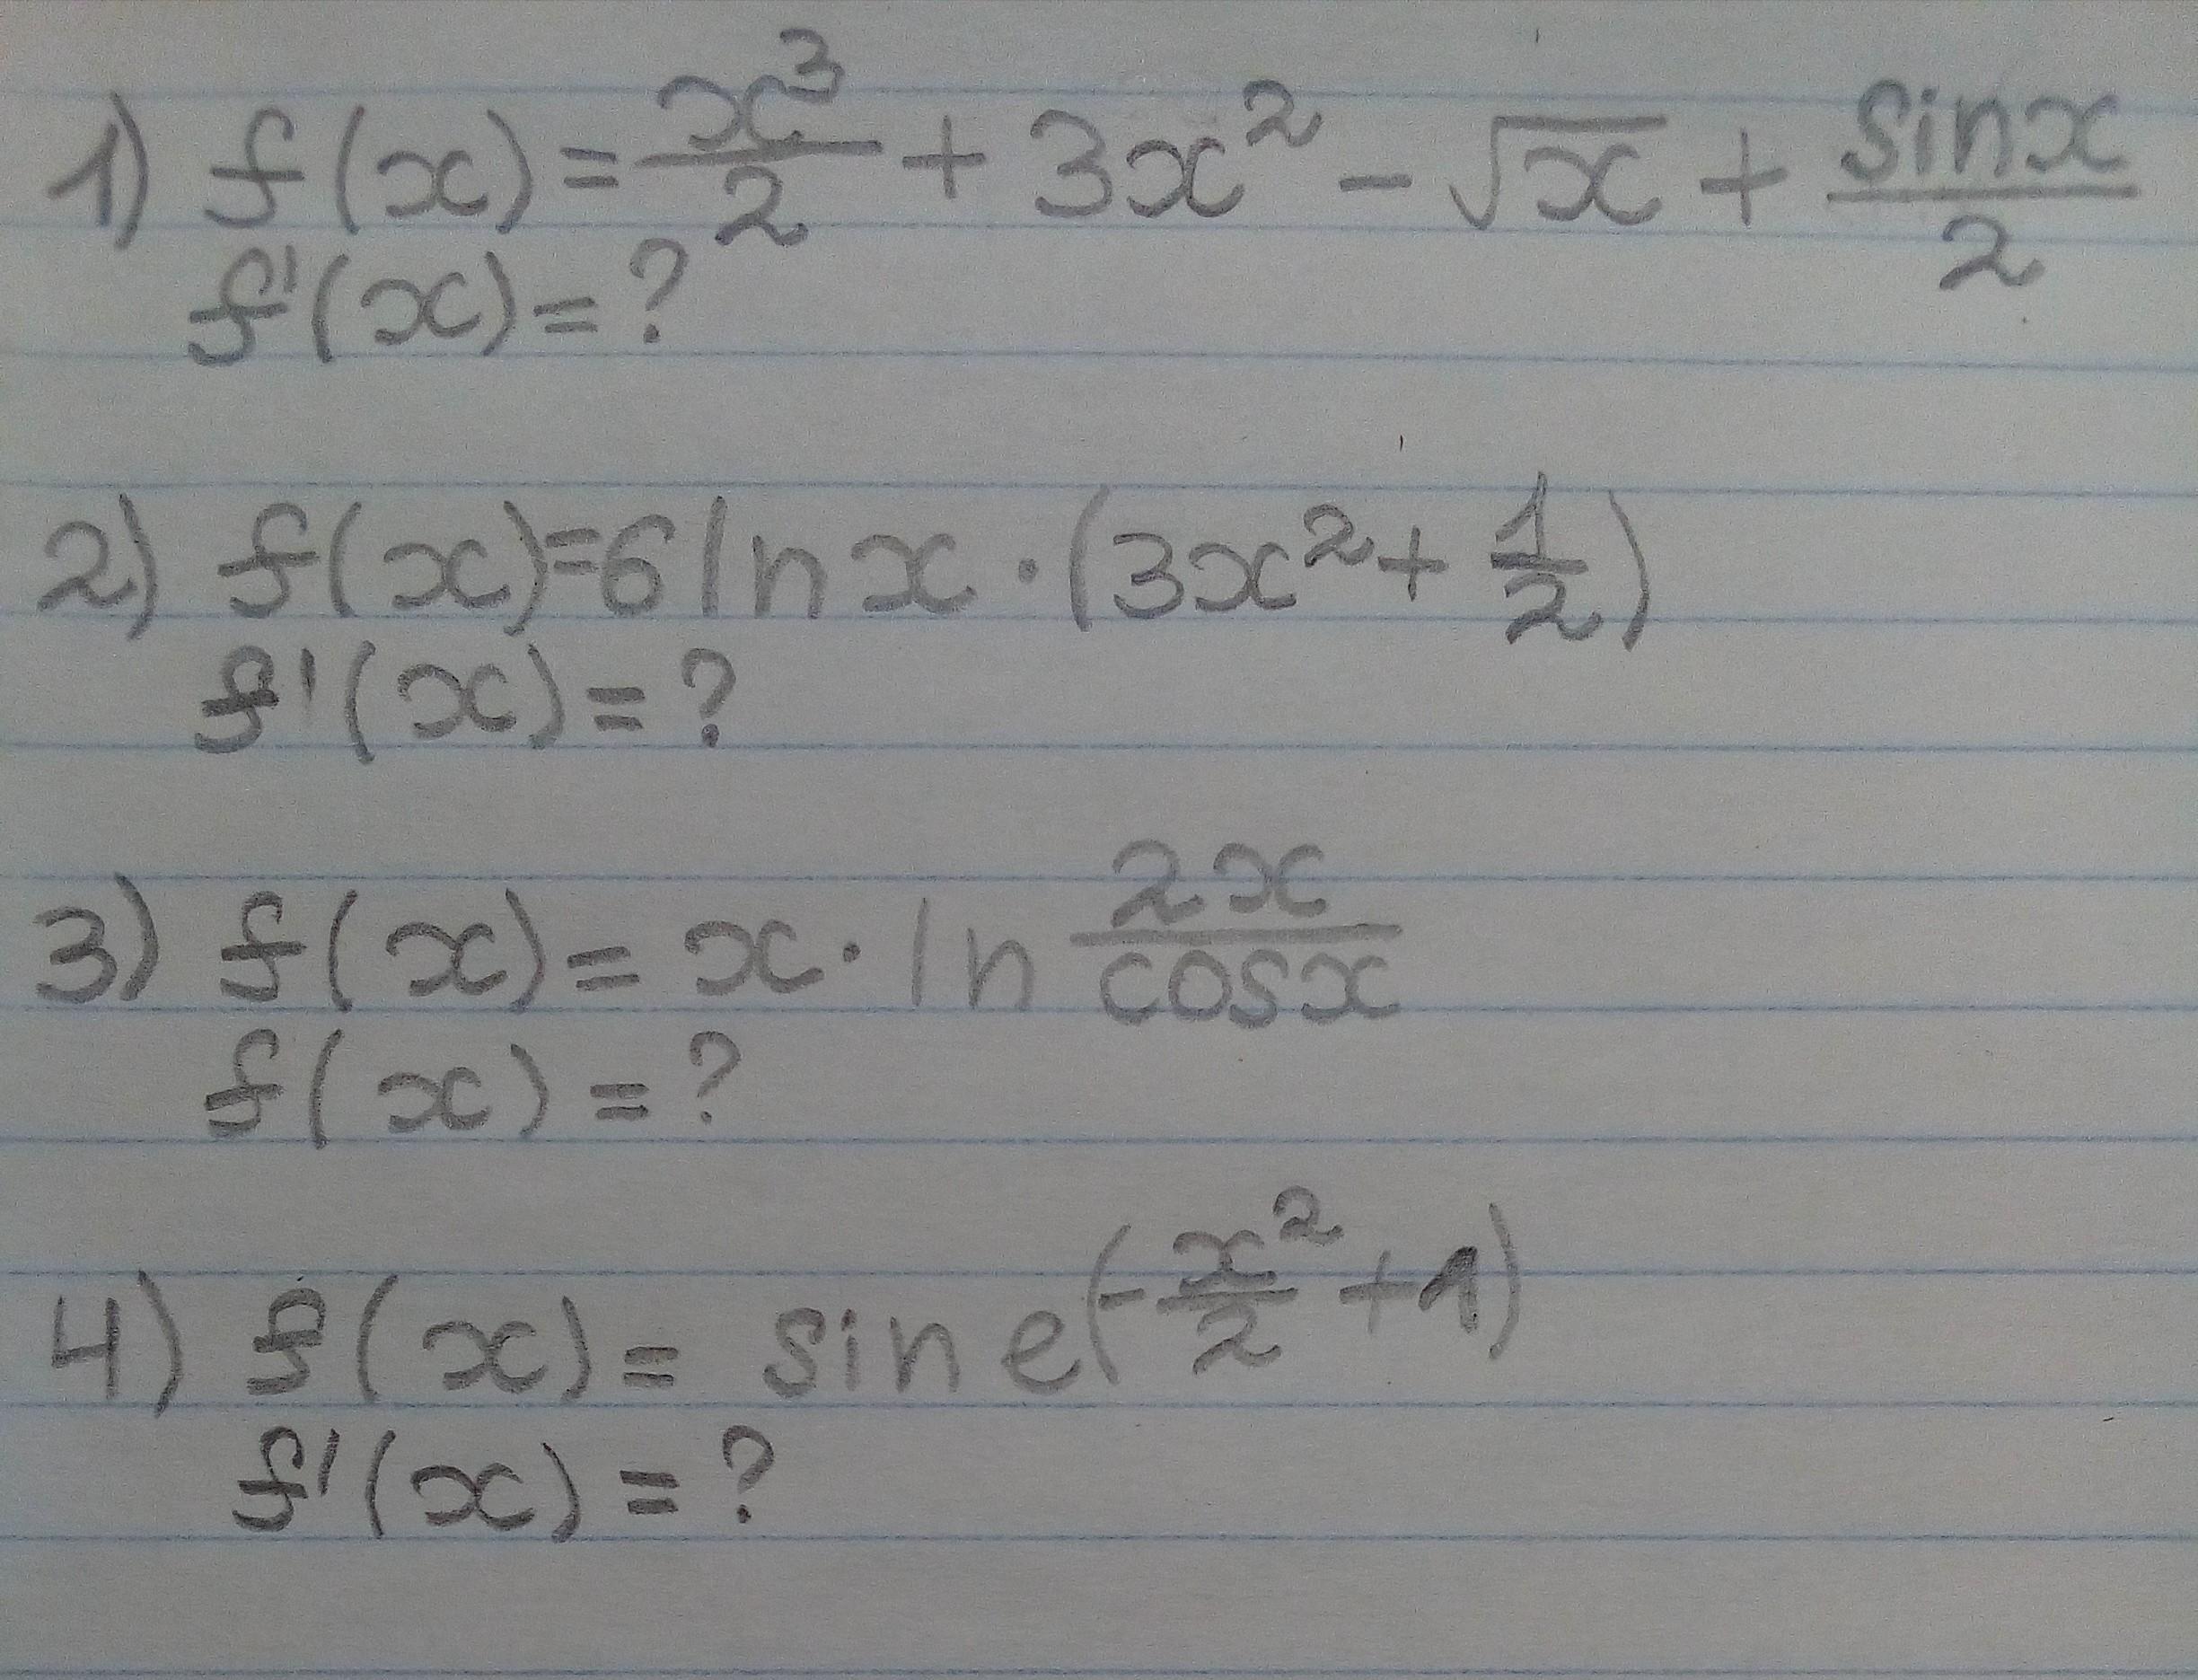 1) f(x) = x³/2 + 3x² - √x + sinx/2
f'(x) = ?
2) f(x)=6lnx·(3x²+1/2)
f'(x) = ?
3) f(x) = x·ln 2x/cosx
f(x) = ?
4) f(x) = sin e^(-x²/2 +1)
f'(x) = ?